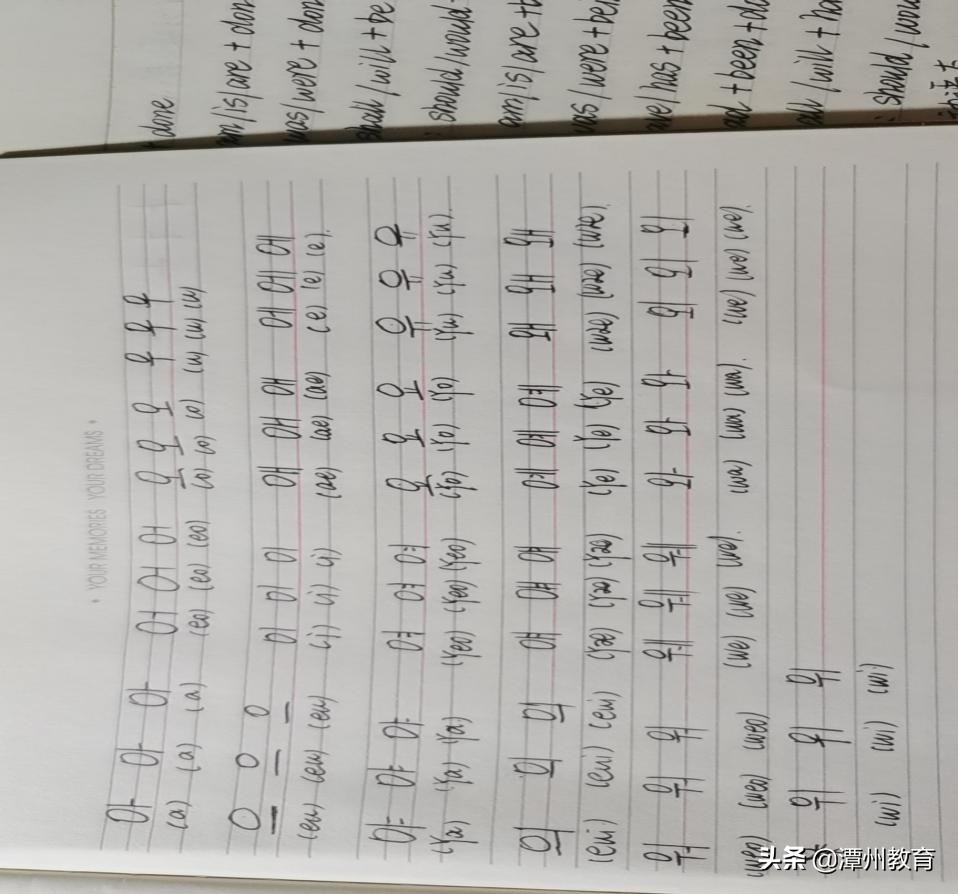 • YOUR MEMORIES YOUR DREAMS •
아 아 아 어 어 어 오 오 오 우 우 우
(a) (a) (a) (eo) (eo) (eo) (o) (o) (o) (u) (u) (u)
으 으 으 이 이 이 애 애 애 에 에 에
(eu) (eu) (eu) (i) (i) (i) (ae) (ae) (ae) (e) (e) (e).
야 야 야 여 여 여 요 요 요 유 유 유
(Ya) (Ya) (Ya) (Yeo) (Yeo) (Yeo) (Yo) (Yo) (Yo) (Yu) (Yu) (Yu).
의 의 의 얘 얘 얘 예 예 예 왜 왜 왜
(eui) (eui) (eui) (Yae) (Yae) (Yae) (Ye) (Ye) (Ye) (wae) (wae) (wae).
워 워 워 웨 웨 웨 와 와 와 외 외 외
(weo) (weo) (weo) (we) (we) (we). (wa) (wa) (wa). (we) (we) (we).
위 위 위
(wi) (wi) (wi)
done
am/is/are + don
was/were + don
shall/will + be
should/would
am/is/are + b
was/were + bei
have/has + been
had + been + do
shall/will + ha
: should/wou
头条 @潭州教育